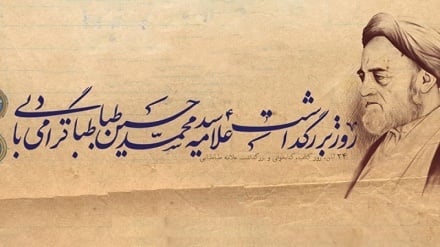 روز بزرگداشت علامه سید محمد حسین طباطبا گرامی باد
۲۴ آبان، روز کتاب، کتابخوانی و بزرگداشت علامه طباطبایی